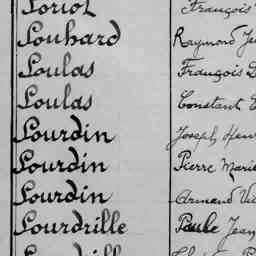 Loriot François
Louhard Raymond Je
Loulas François D
Loulas Constant E
Lourdin Joseph Henr
Lourdin Pierre Marie
Lourdin Armand Vic
Lourdrille Paule Jean